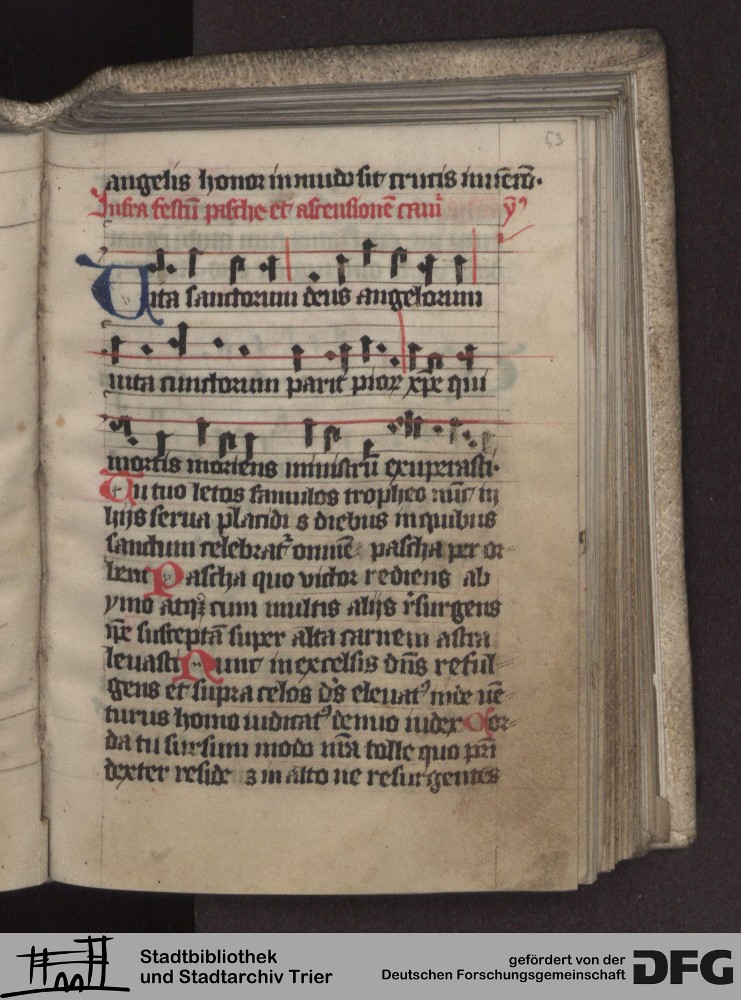 53
angelis honor in mundo sit crucis
Infra festū pasche et ascensionē
Vita sanctorum deus angelorum
uita cunctorum parit pior xp̄e qui
mortis moriens ministrū exuperasti·
Qu tuo letos famulos tropheo nūc in
hijs serua placidi s diebus in quibus
sanctum celebrat᷒ omnē pascha per or
bem Pascha quo victor rediens ab
ymo atq; cum multis alijs r̄surgens
ip̄e susceptā super alta carnem astra
leuasti Nunc in excelsis dn̄s reful
gens et supra celos d̄s eleuat᷒ inde uē
turus homo iudicat᷒ denuo iudex Cor
da tu sursum modo nr̄a tolle quo pr̄i
dexter reside s in alto ne resurgentes
Stadtbibliothek
und Stadtarchiv Trier
gefördert von der
Deutschen Forschungsgemeinschaft
DFG